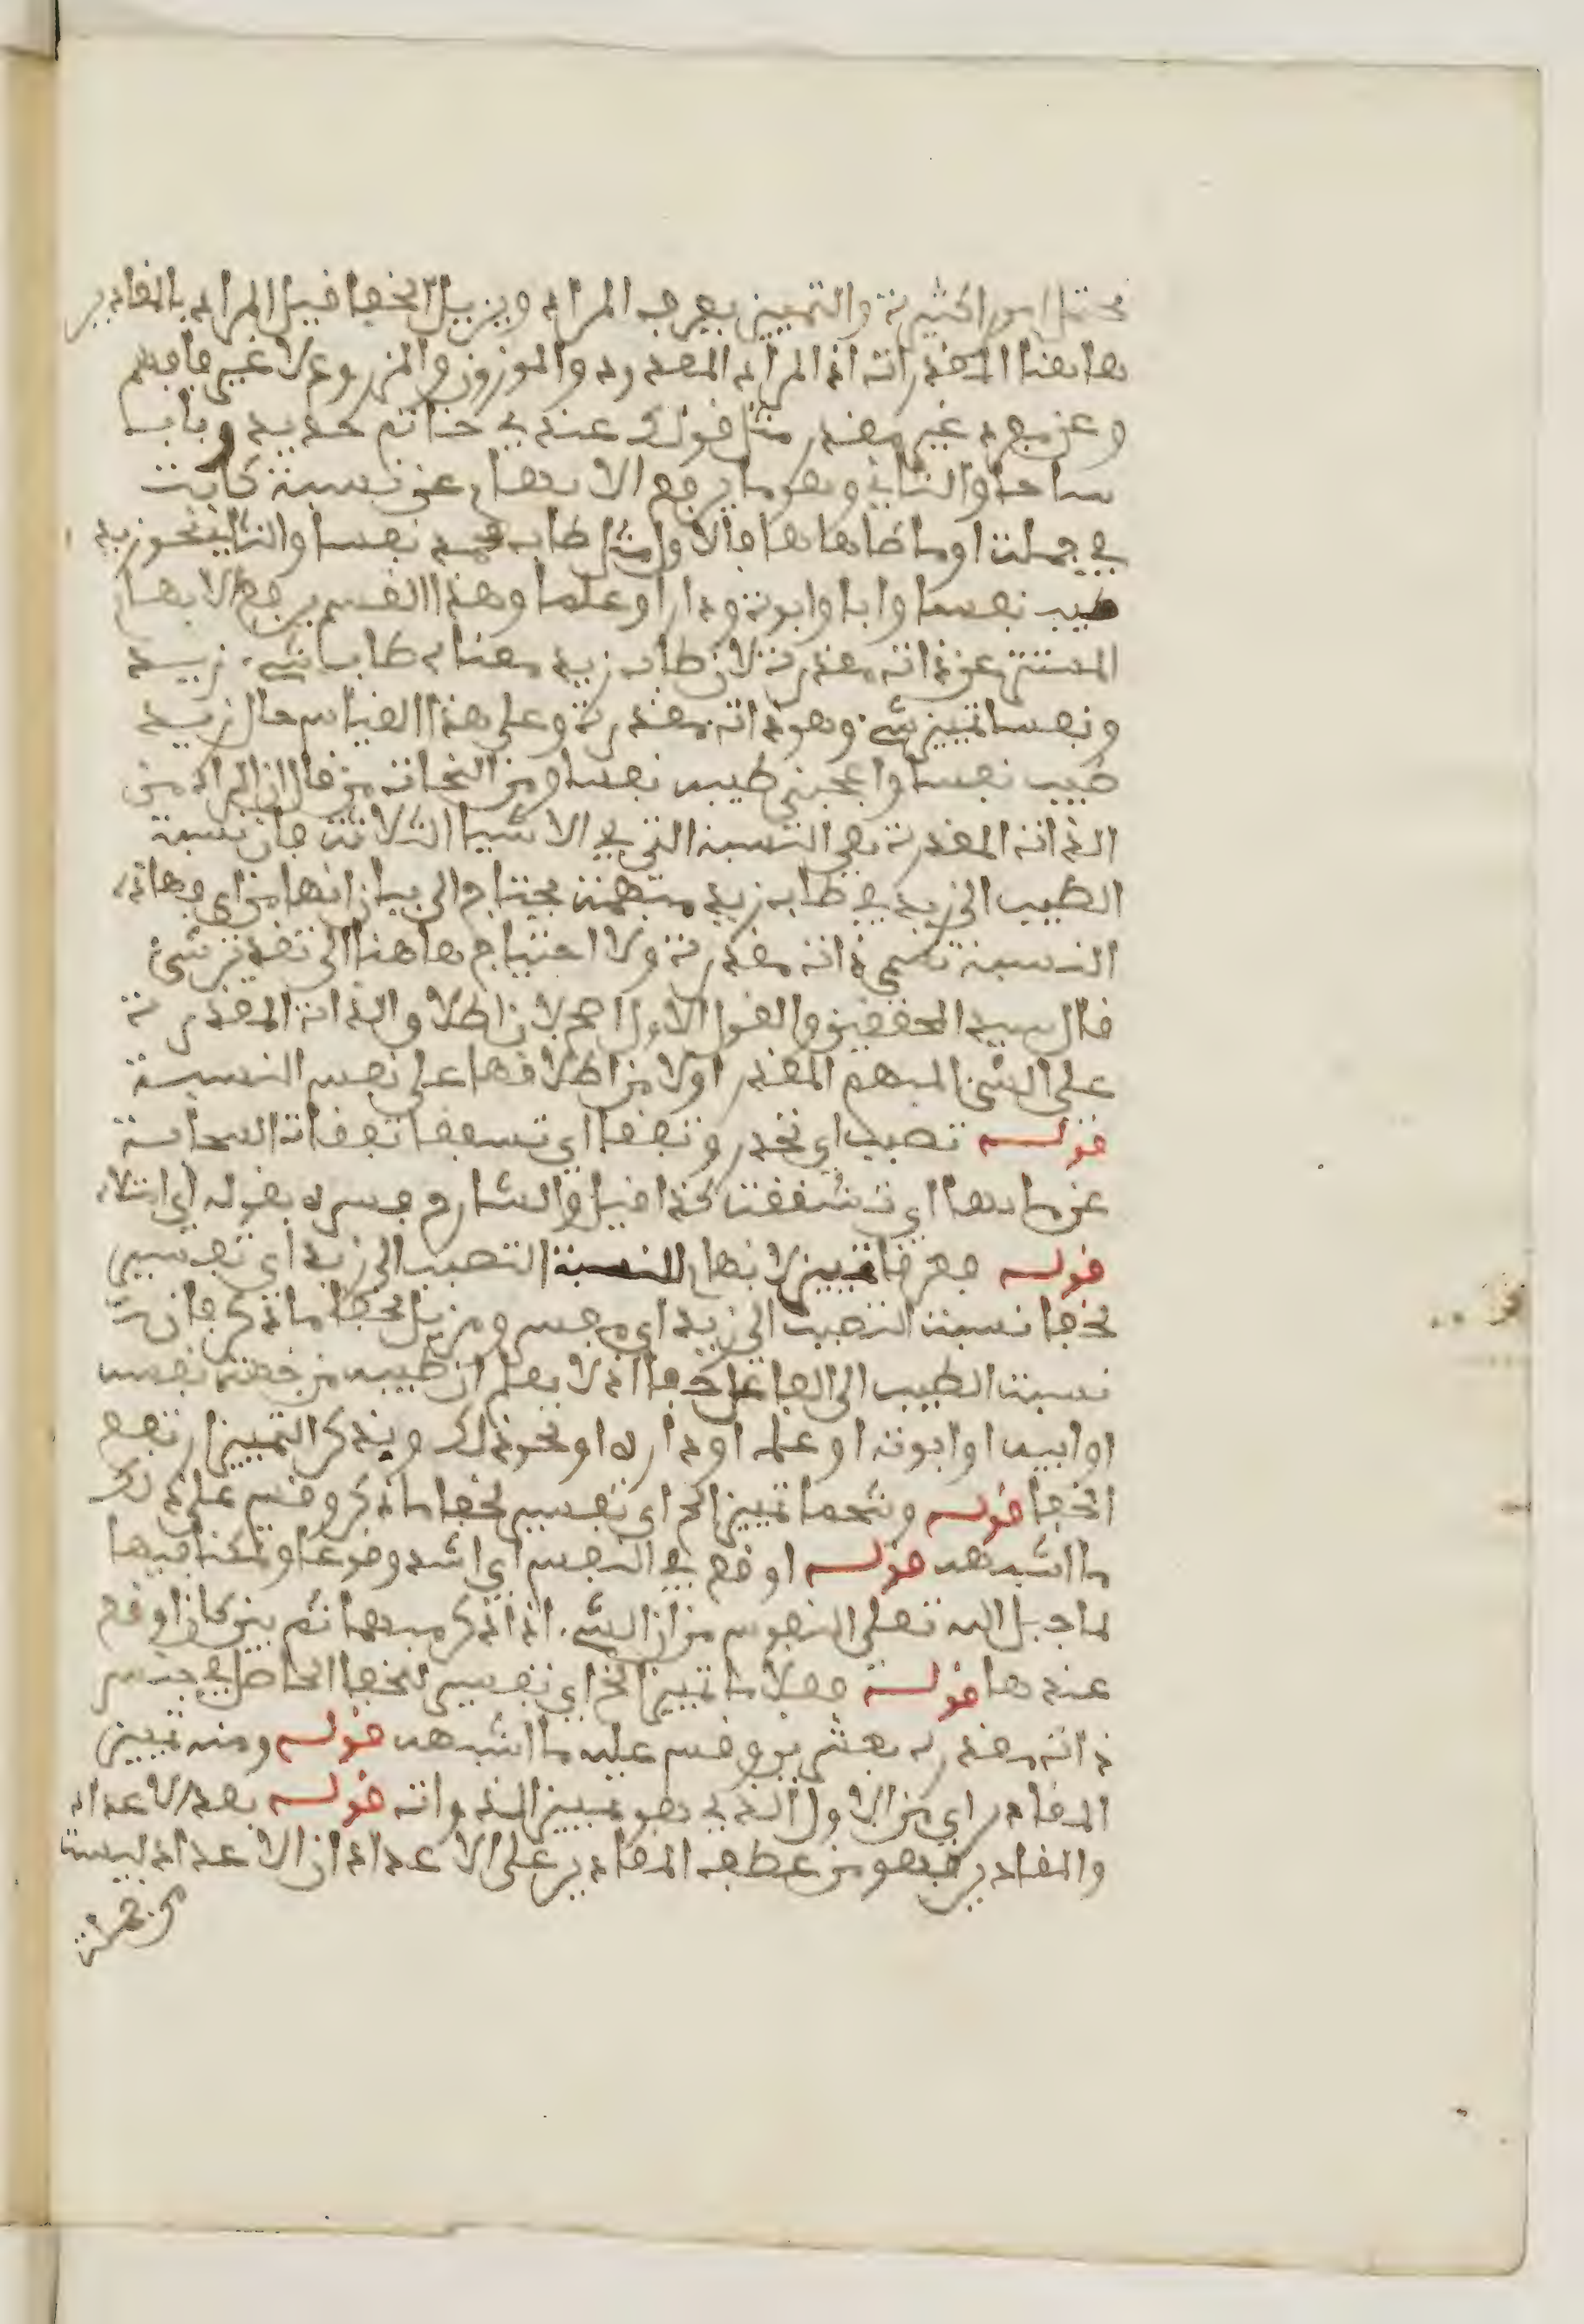 محتمل امورا كثيرة والتمييز يعرف المراد ويزيل الخفا فيل المراد بالمقادير
هاهنا المقدرات اذ المراد المعدود والموزون والمزروع لا غير فافهم
وعن مفرد غير مقدر مثل قولك عندي خاتم حديد وباب
ساجا والثاني وهو ما يرفع الابهام عن نسبة كاينة
في جملة او ما ضاهاها فالاول مثل طاب محمد نفسا والثاني نحو زيد
طيب نفسا وابا وابوة ودارا وعلما وهذا القسم يرفع الابهام
المستتر عن ذات مقدرة لان طاب زيد معناه طاب شيء زيد
ونفسا تمييز شيء وهو ذات مقدرة وعلى هذا القياس حال زيد
طيب نفسا واعجبني طيب نفسا ومن النحاة من قال ان المراد من
الذات المقدرة هي النسبة التي في الاشيا الثلاثة فان نسبة
الطيب الى زيد في طاب زيد مبهمة يحتاج الى بيان انها من اي وهاته
النسبة تسمى ذات مقدرة ولا احتياج هاهنا الى تقدير شئ
قال سيد المحققين والقول الاول اصح لان اطلاق الذات المقدرة
على الشئ المبهم المقدر اولا من اطلاقها على نفس النسبة
قوله تصبب اي تحدر وتفقا اي تسققا تفقات السحابة
عن مايها اي تشققت كذا قيل والشارح فسره بقوله اي امتلاء
قوله فعرقا تمييز لابهام النسبة التصبب الى زيد اي تفسير
لخفا نسبة التصبب الى زيد اي مفسر ومزيل لخفا ما ذكر فان
نسبة الطيب الى الفاعل خفا اذ لا يعلم ان طيب من جهة نفسه
او ابيه او ابوته او علمه او داره او نحو ذلك وبذكر التمييز ارتفع
الخفا قوله وشحما تمييز الخ اي تفسير لخفا ما ذكر وقس على ذلك
ما اشبهه قوله اوقع في النفس اي اشد وقوعا وتمكنا فيها
لما جبل الله تعلى النفوس من ان الشيء اذا ذكر مبهما ثم بين كان اوقع
عندها قوله فغلاما تمييز الخ اي تفسير لخفا الحاصل في جنس
ذات مقدره بعشرين وقس عليه ما اشبهه قوله ومنه تمييز
المقادر اي من الاول الذي هو تمييز الذوات قوله بعد الاعداد
والمقادير فهو من عطف المقادير على الاعداد اذ الاعداد ليست